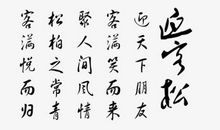 迎客松
迎天下朋友
客满笑而来
聚人间风情
松柏之常青
客满悦而归